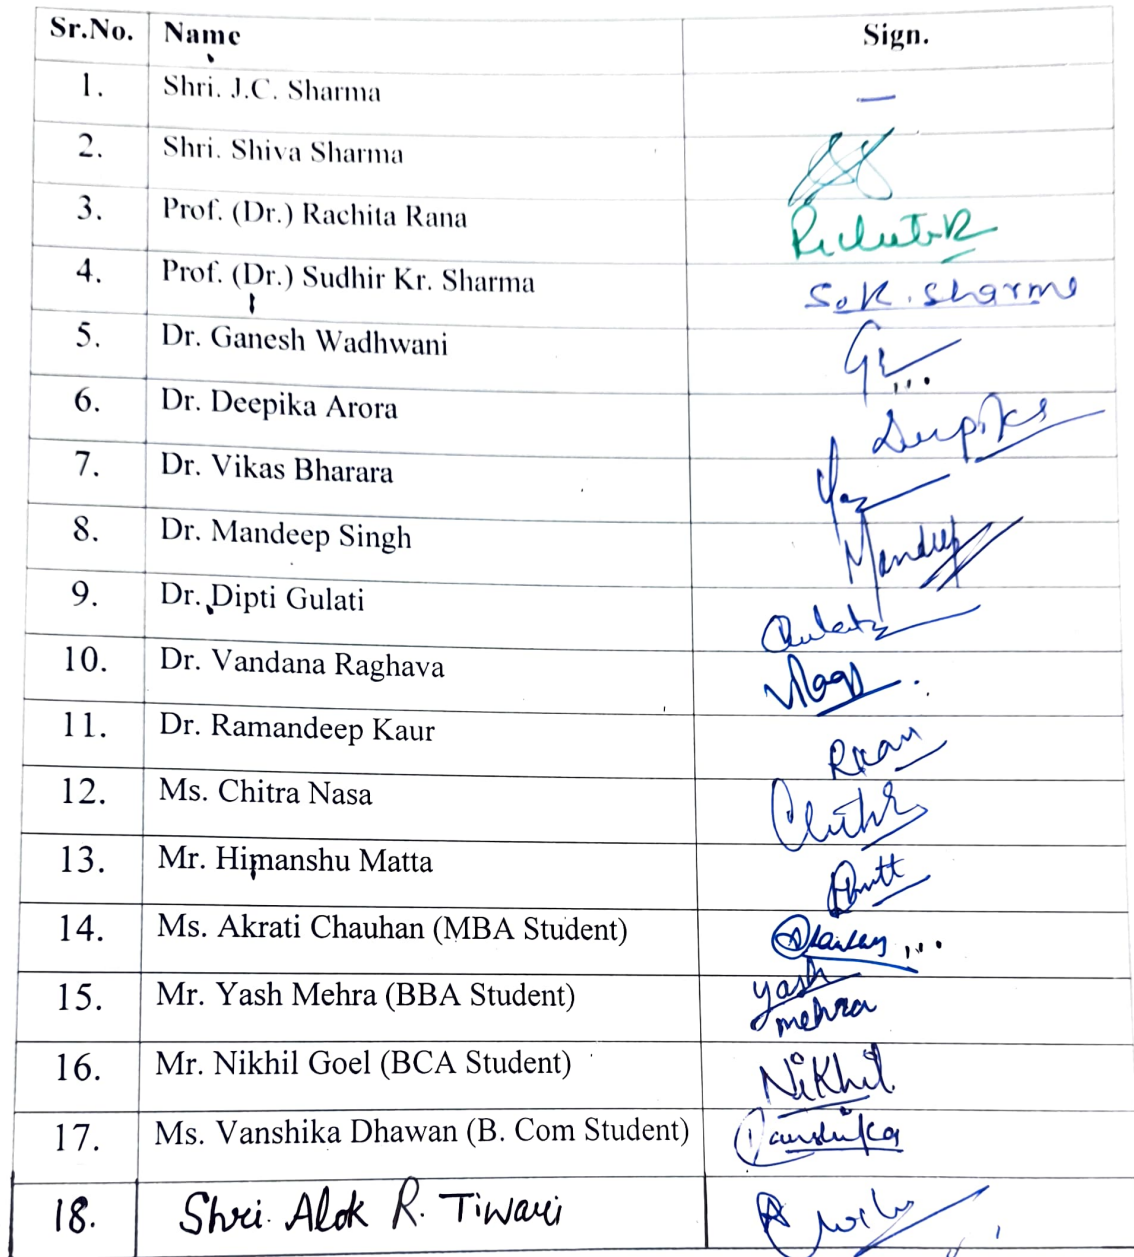 Sr.No. Name Sign.
1. Shri. J.C. Sharma —
2. Shri. Shiva Sharma
3. Prof. (Dr.) Rachita Rana
4. Prof. (Dr.) Sudhir Kr. Sharma S.K. Sharma
5. Dr. Ganesh Wadhwani
6. Dr. Deepika Arora Deepika
7. Dr. Vikas Bharara
8. Dr. Mandeep Singh Mandeep
9. Dr. Dipti Gulati
10. Dr. Vandana Raghava
11. Dr. Ramandeep Kaur
12. Ms. Chitra Nasa
13. Mr. Himanshu Matta
14. Ms. Akrati Chauhan (MBA Student)
15. Mr. Yash Mehra (BBA Student) yash
mehra
16. Mr. Nikhil Goel (BCA Student) Nikhil
17. Ms. Vanshika Dhawan (B. Com Student) Vanshika
18. Shri. Alok R. Tiwari